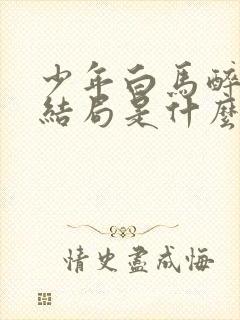 少年白馬醉
結局是什麼
情史盡成悔